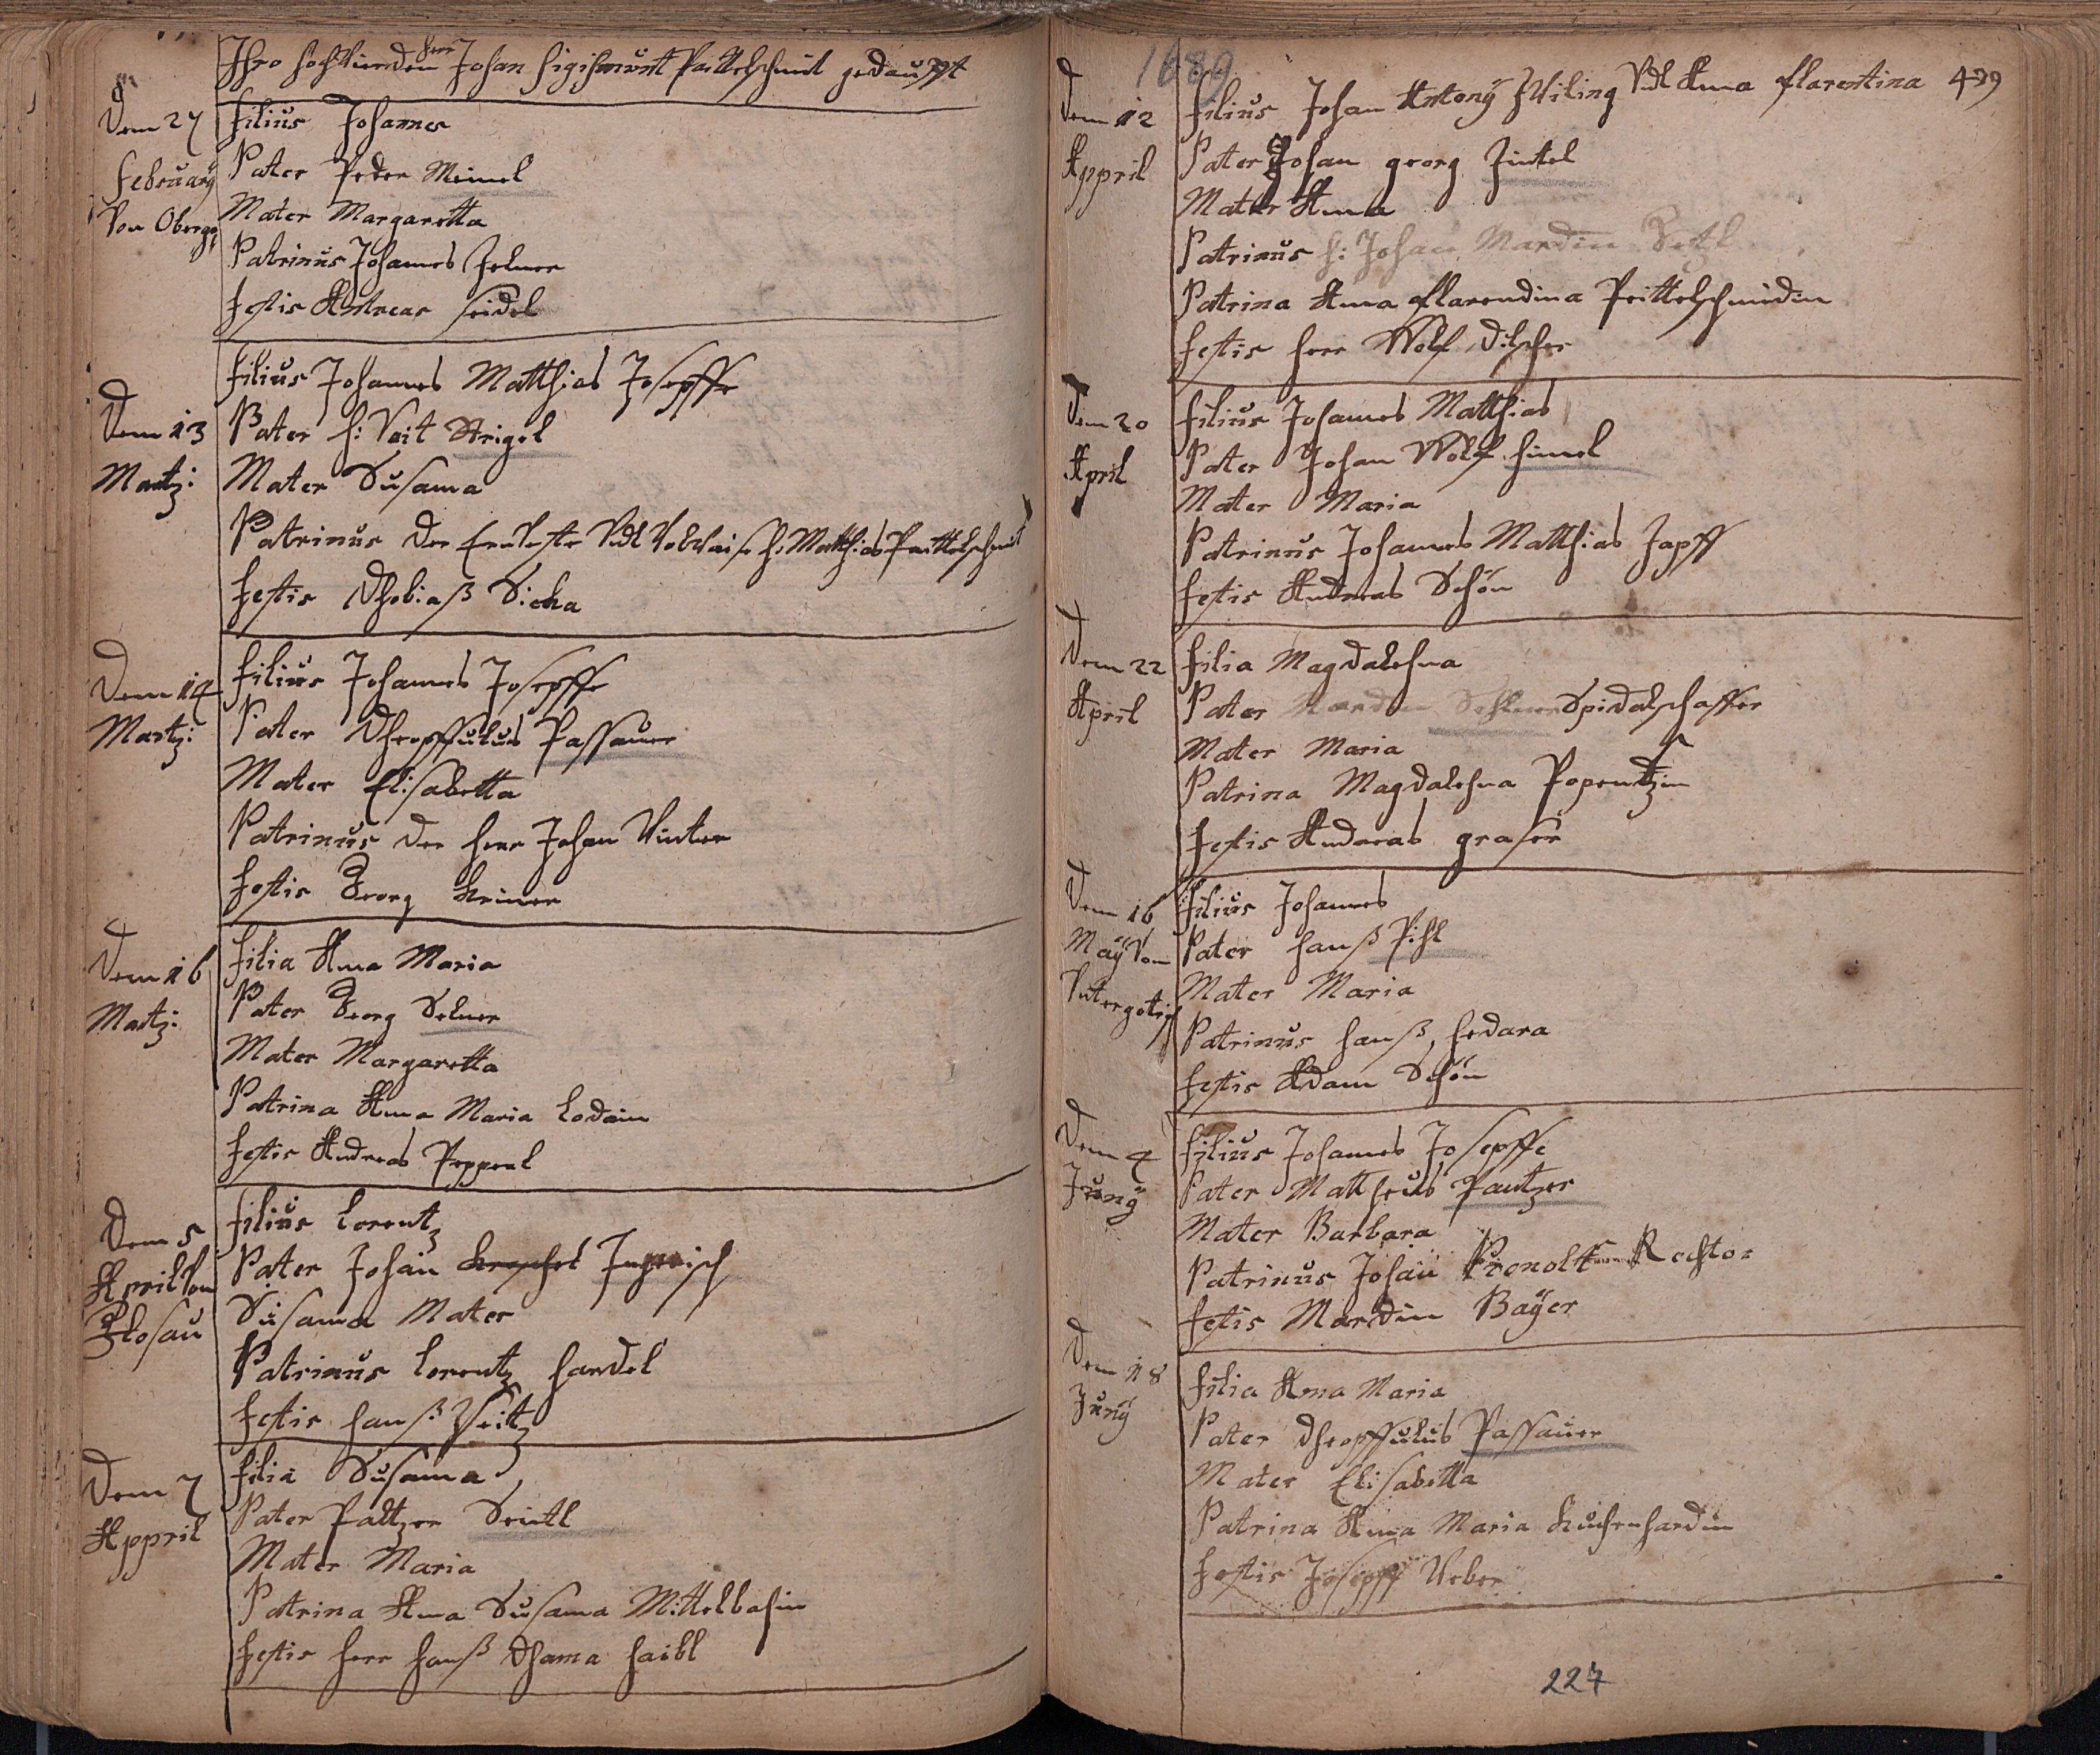 Ihro hochwierden herr Johan Sigismunt Peittelschmit gedaufft
Dem 27
February
Von Oberge
Filius Johannes
Pater Peder Meinel
Mater Margaretta
Patrinus Johannes
Testis Andreas Seidel
Dem 13
Martz:
Filius Johannes Matthias Josepffe
Pater h: Veit Strigel
Mater Susanna
Patrinus der Ernveste Vndt h: Matthias Peittelschmit
Testis Dhobiaß Sicha
Dem 14
Martz:
Filius Johannes Josepffe
Pater Dheopffulus Passauer
Mater Elisabetta
Patrinus der herr Johan Winter
Testis Georg
Dem 16
Martz:
Filia Anna Maria
Pater Georg Selner
Mater Margaretta
Patrina Anna Maria Lodain
Testis Andreas Popperl
Dem 5
April Von
Kosau
Filius Lorentz
Pater Johan
Susanna Mater
Patrinus Lorentz handel
Testis hanß Veitz
Dem 7
Appril
Filia Susanna
Pater Paltzer Seittl
Mater Maria
Patrina Anna Susanna Mittelbahin
Testis herr hanß Dhama haibl
1689
479
Dem 12
Appril
Filius Johan Antony Zwiling Vndt Anna Florentina
Pater Johan georg Zintel
Mater Anna
Patrinus h: Johan Mardin
Patrina Anna Florendina Peittelschmidin
Testis herr Wolf Dilscher
Dem 20
April
Filius Johannes Matthias
Pater Johan Wolf himel
Mater Maria
Patrinus Johannes Matthias Zapff
Testis Andreas Schön
Dem 22
April
Filia Magdalehna
Pater Mardin Spidalschaffer
Mater Maria
Patrina Magdalehna Popentzin
Testis Andreas graser
Dem 16
May Von
Vntergotig
Filius Johannes
Pater hanß Pihl
Mater Maria
Patrinus hanß hedara
Testis Adam Schön
Dem 4
Juny
Filius Johannes Josepffe
Pater Mattheus Pantzer
Mater Barbara
Patrinus Johan Rechtor
Testis Mardin Bayer
Dem 18
Juny
Filia Anna Maria
Pater Dheopffulus Passauer
Mater Elisabetta
Patrina Anna Maria Kuchenhardin
Testis Josepff Weber
227